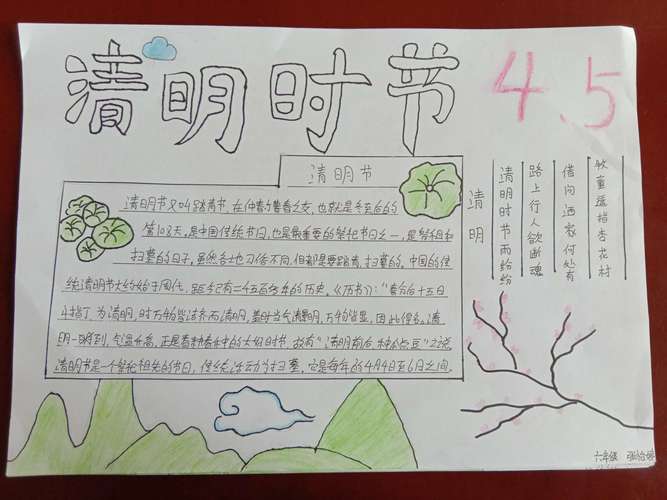 清明时节
4.5
清明节
清明节又叫踏青节，在仲春与暮春之交，也就是冬至后的
第108天，是中国传统节日，也是最重要的祭祀节日之一，是祭祖和
扫墓的日子，虽然各地习俗不同，但都是要踏青，扫墓的。中国的传
统清明节大约始于周代，距今已有二千五百多年的历史。《历书》："春分后十五日
斗指丁，为清明，时万物皆洁齐而清明，盖时当气清景明，万物皆显，因此得名。清
明一到，气温升高，正是春耕春种的大好时节，故有"清明前后，种瓜点豆"之说
清明节是一个祭祀祖先的节日，传统活动为扫墓，它是每年的4月4日至6日之间。
清明
清明时节雨纷纷
路上行人欲断魂
借问酒家何处有
牧童遥指杏花村
六年级